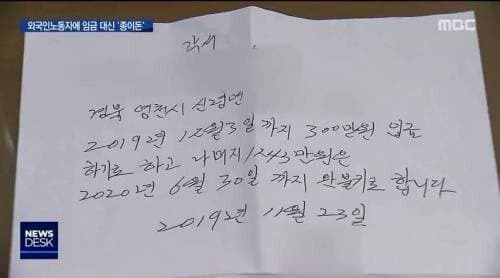 외국인노동자에 임금 대신 '종이돈'
MBC
각서
경북 영천시 신령면
2019년 12월3일 까지 300만원 입금
하기로 하고 나머지 1243만원은
2020년 6월 30일 까지 완불키로 합니다
2019년 11월 23일
NEWS
DESK